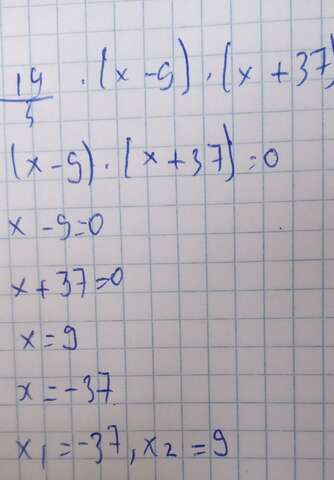 19/5 · (x - 9) · (x + 37)
(x - 9) · (x + 37) = 0
x - 9 = 0
x + 37 = 0
x = 9
x = -37
x₁ = -37, x₂ = 9